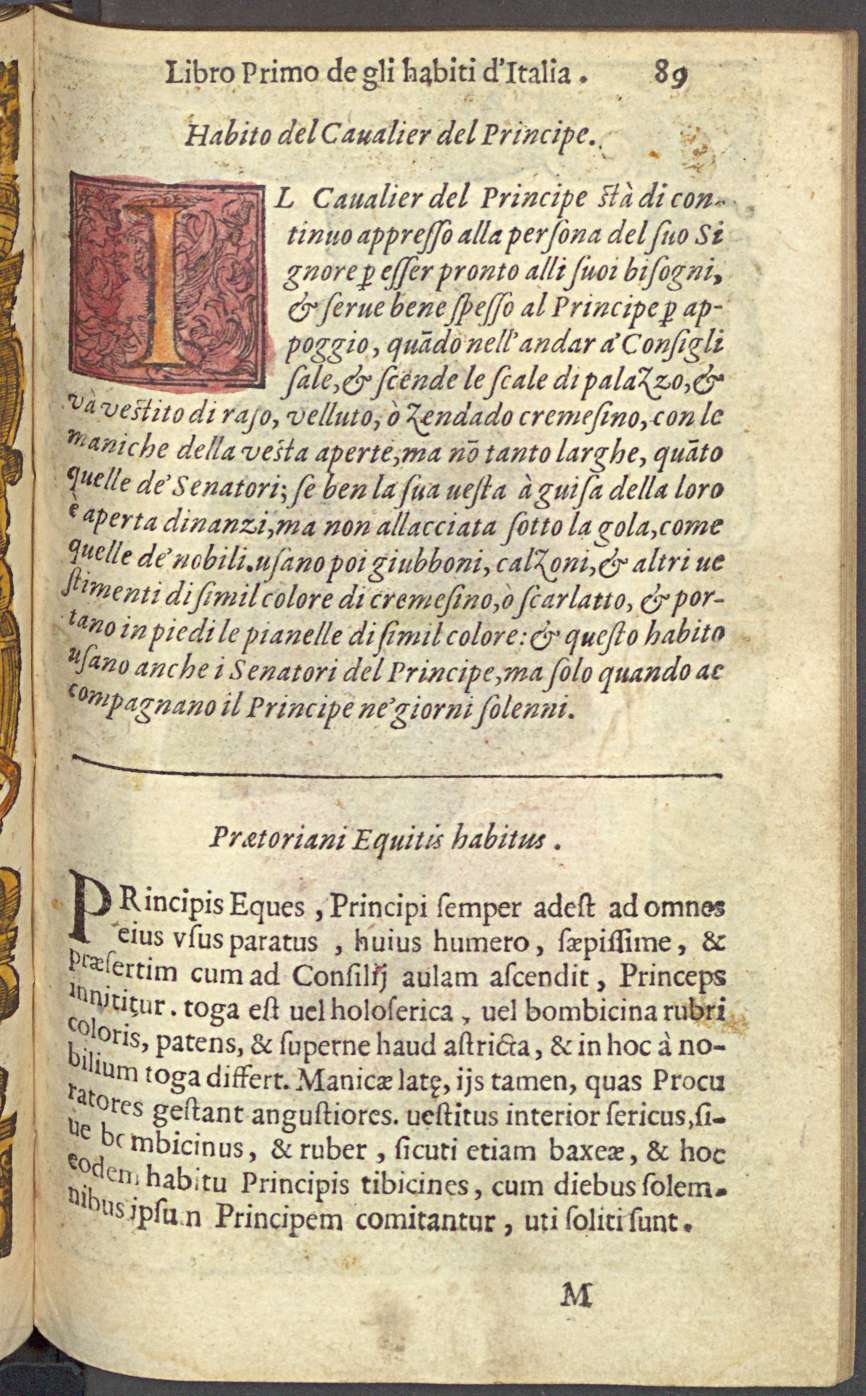 Libro Primo de gli habiti d'Italia. 89
Habito del Caualier del Principe.
IL Caualier del Principe ſtà di con-
tinuo appreſſo alla perſona del ſuo Si
gnore ꝑ eſſer pronto alli ſuoi biſogni,
& ſerue bene ſpeſſo al Principe ꝑ ap-
poggio, quãdo nell'andar a' Conſigli
ſale, & ſcende le ſcale di palazzo, &
và veſtito di raſo, velluto, ò zendado cremeſino, con le
maniche della veſta aperte, ma nõ tanto larghe, quãto
quelle de' Senatori; ſe ben la ſua ueſta à guiſa della loro
è aperta dinanzi, ma non allacciata ſotto la gola, come
quelle de' nobili. uſano poi giubboni, calzoni, & altri ue
ſtimenti di ſimil colore di cremeſino, ò ſcarlatto, & por-
tano in piedi le pianelle di ſimil colore: & queſto habito
uſano anche i Senatori del Principe, ma ſolo quando ac
compagnano il Principe ne' giorni ſolenni.
Prætoriani Equitis habitus.
PRincipis Eques, Principi ſemper adeſt ad omnes
eius vſus paratus, huius humero, ſæpiſſime, &
præſertim cum ad Conſilij aulam aſcendit, Princeps
innititur. toga eſt uel holoſerica, uel bombicina rubri
coloris, patens, & ſuperne haud aſtricta, & in hoc à no-
bilium toga differt. Manicæ latę, ijs tamen, quas Procu
ratores geſtant anguſtiores. ueſtitus interior ſericus, ſi-
ue bombicinus, & ruber, ſicuti etiam baxeæ, & hoc
eodem habitu Principis tibicines, cum diebus ſolem-
nibus ipſum Principem comitantur, uti ſoliti ſunt.
M